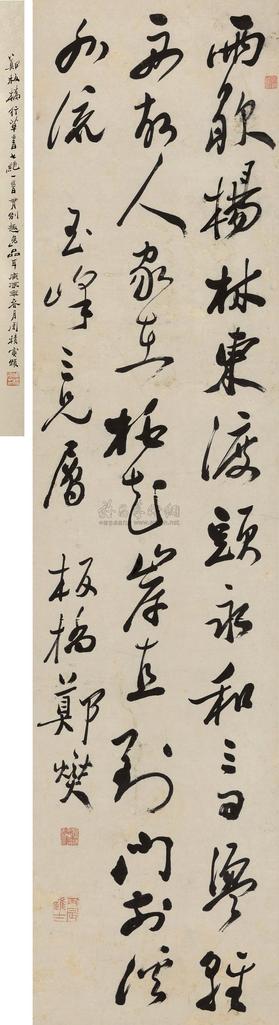 雨歇楊林東渡頭永和三日盪輕
舟故人家在桃花岸直到門前溪
水流 玉峰三兄屬 板橋鄭燮
丙辰進士
鄭板橋行草書七絕一首 冬月周積寅題